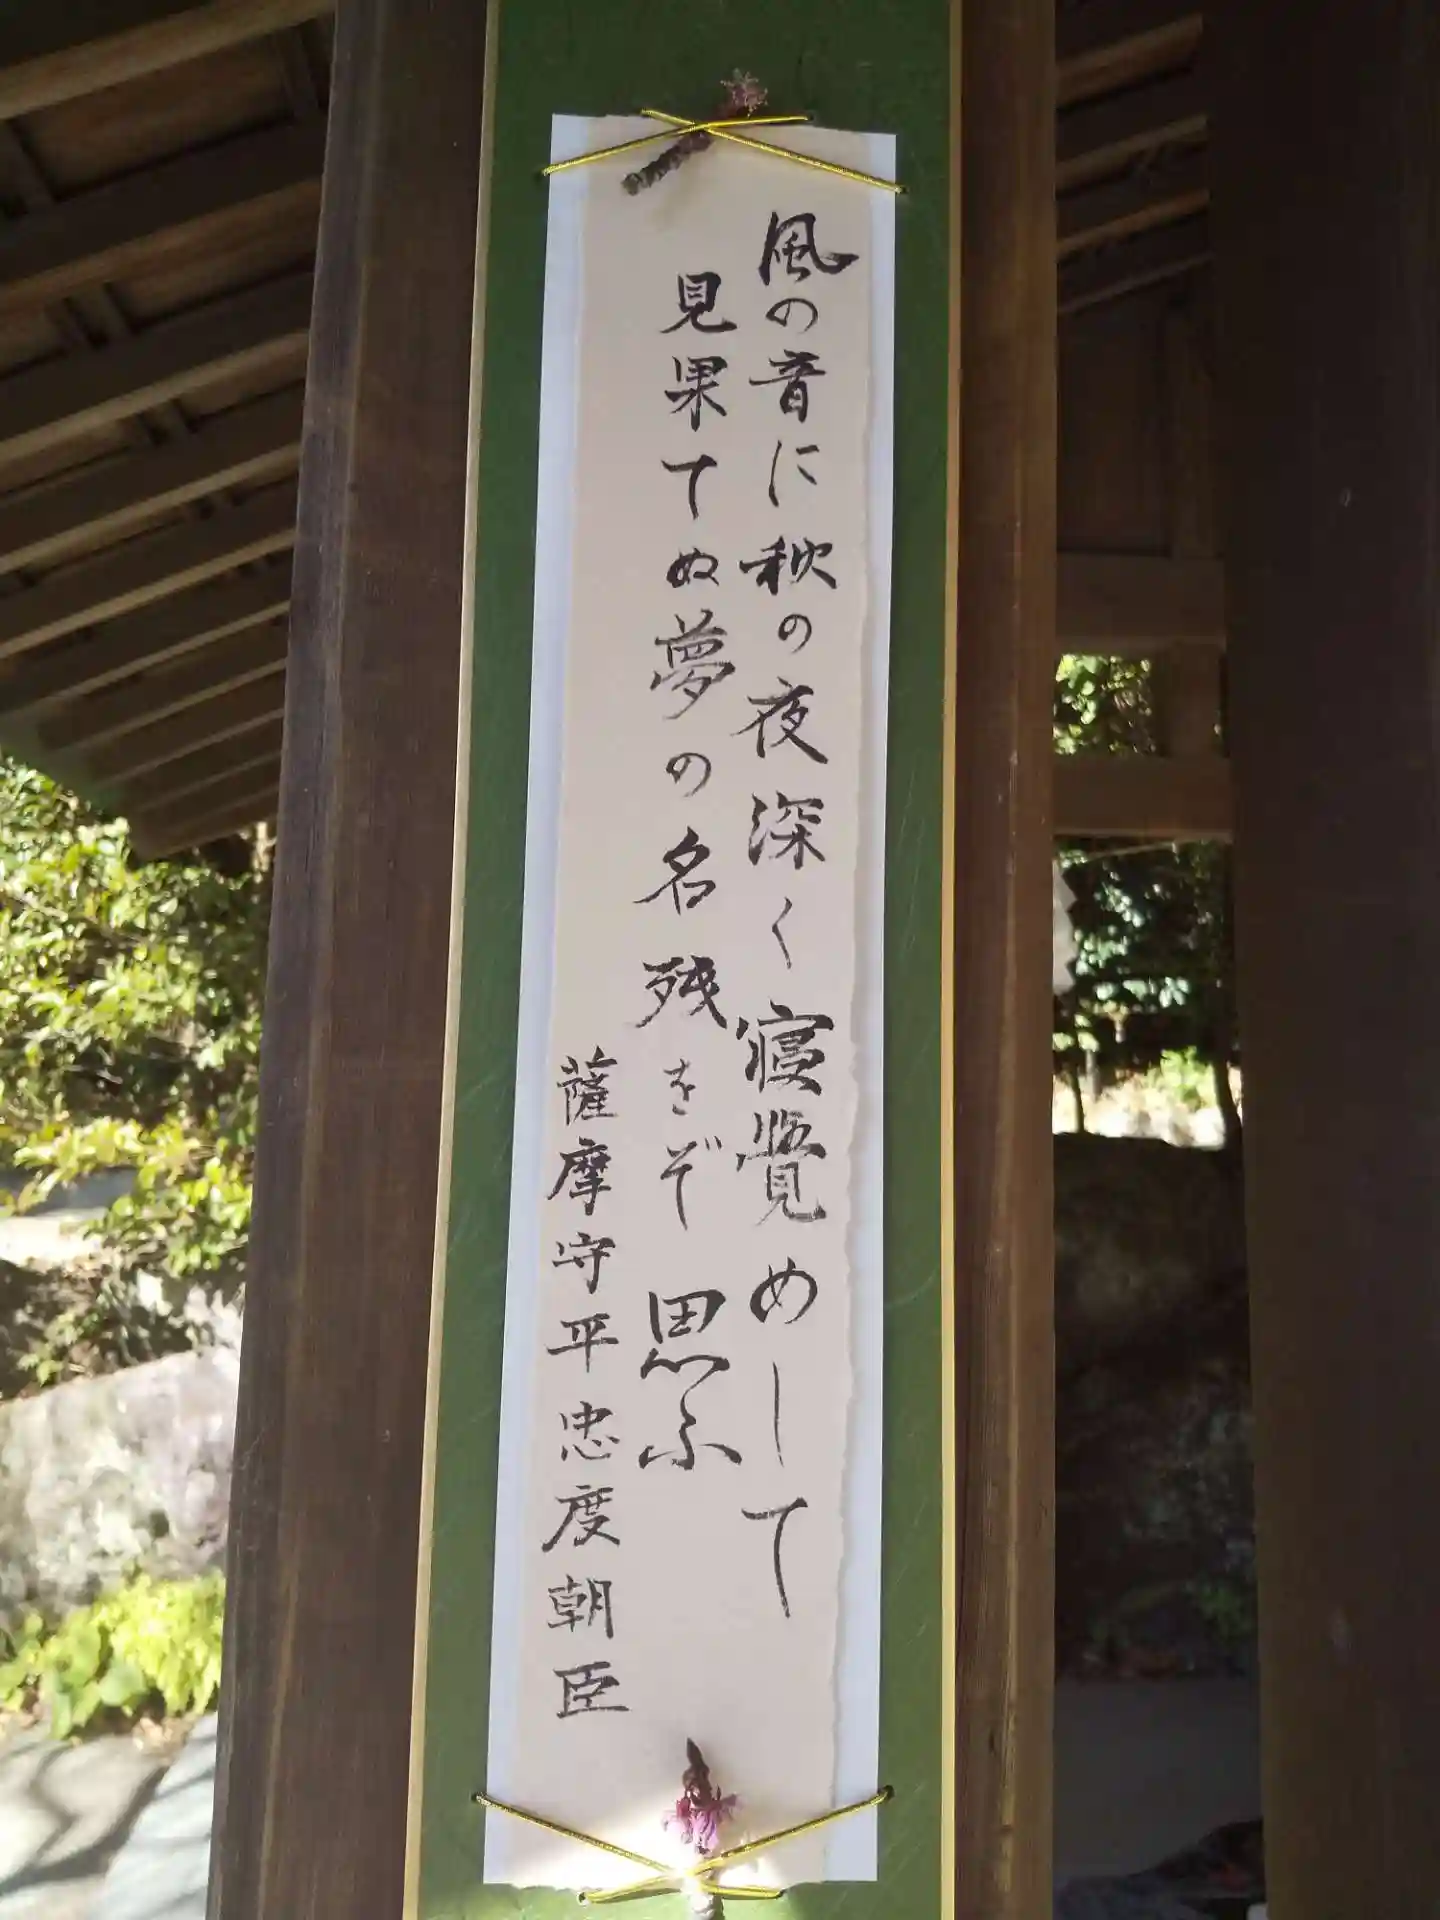 風の音に秋の夜深く寝覚めして
見果てぬ夢の名残をぞ思ふ
薩摩守平忠度朝臣